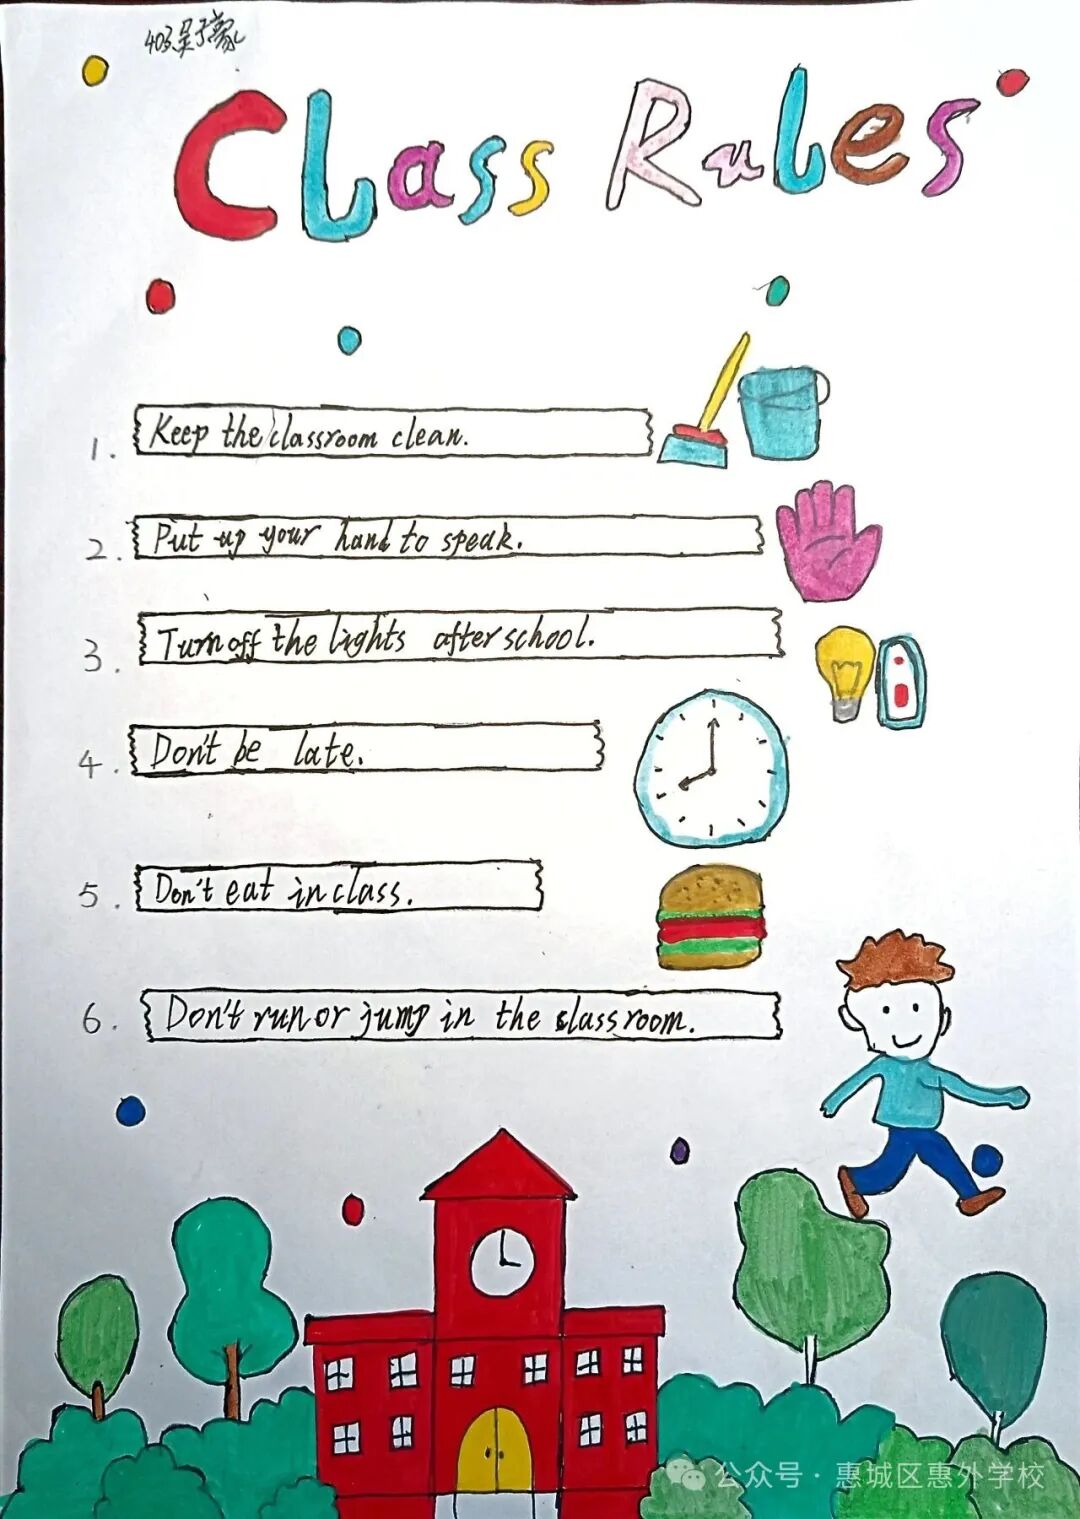 403吴子蒙
Class Rules
1. Keep the classroom clean.
2. Put up your hand to speak.
3. Turn off the lights after school.
4. Don't be late.
5. Don't eat in class.
6. Don't run or jump in the classroom.
公众号·惠城区惠外学校